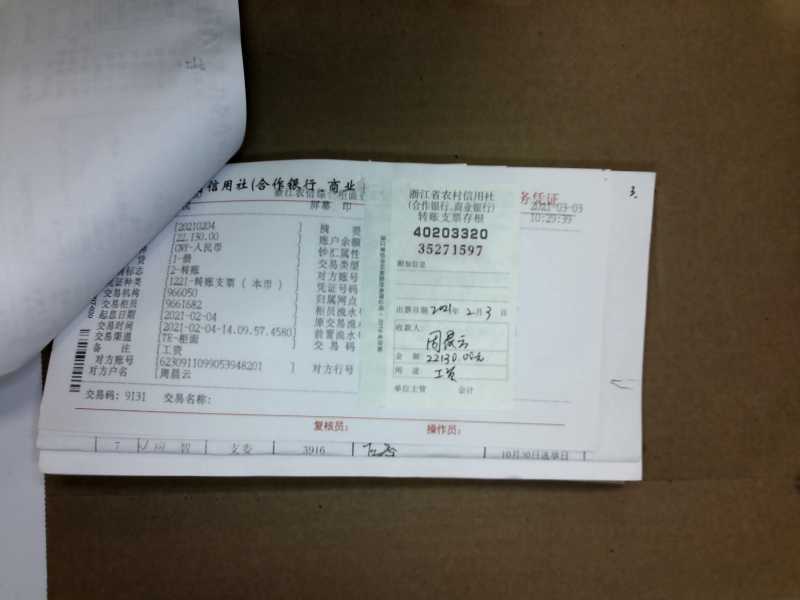 信用社(合作银行、商业
务凭证
3.
屏幕 印
2021-03-03
10:29:39
[20210204
摘 要
[22,130.00
账户余额
[CNY-人民币
钞汇属性
[1-册
交易类型
标志
[2-转账
对方账号
凭证种类
[1221-转账支票 ( 本币 )
凭证号码
交易机构
[966050
归属网点
交易柜员
[9661682
柜员流水
起息日期
[2021-02-04
原交易流水
交易时间
[2021-02-04-14.09.57.4580]
前置流水
交易渠道
[TE-柜面
交 易 码
备 注
[工资
对方账号
[6230911099053948201 ]
对方行号
对方户名
[周晨云
交易码: 9131 交易名称:
复核员: 操作员:
浙江省农村信用社
(合作银行、商业银行)
转账支票存根
40203320
35271597
附加信息
出票日期 2021年 2月 3日
收款人:
周晨云
金 额: 22130.00元
用 途: 工资
单位主管 会计
7
支委
3916
10月30日选举日